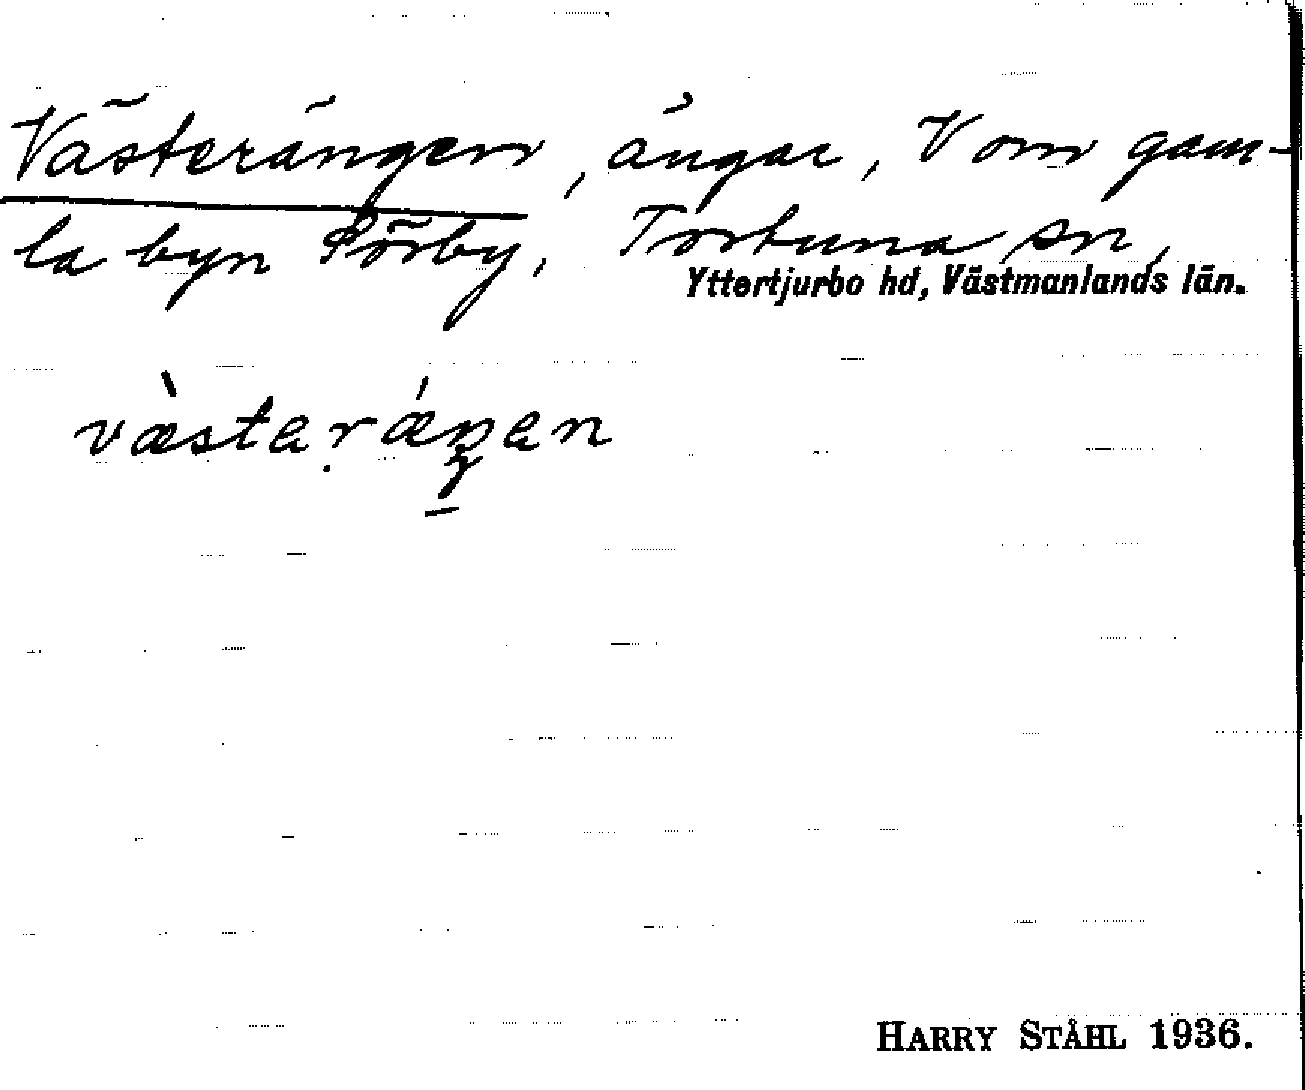 Västerängen, ängar, V om gam-
la byn Pörby, Tortuna sn,
Yttertjurbo hd, Västmanlands län.
væ̀stạrǽŋan
HARRY STÅHL 1936.